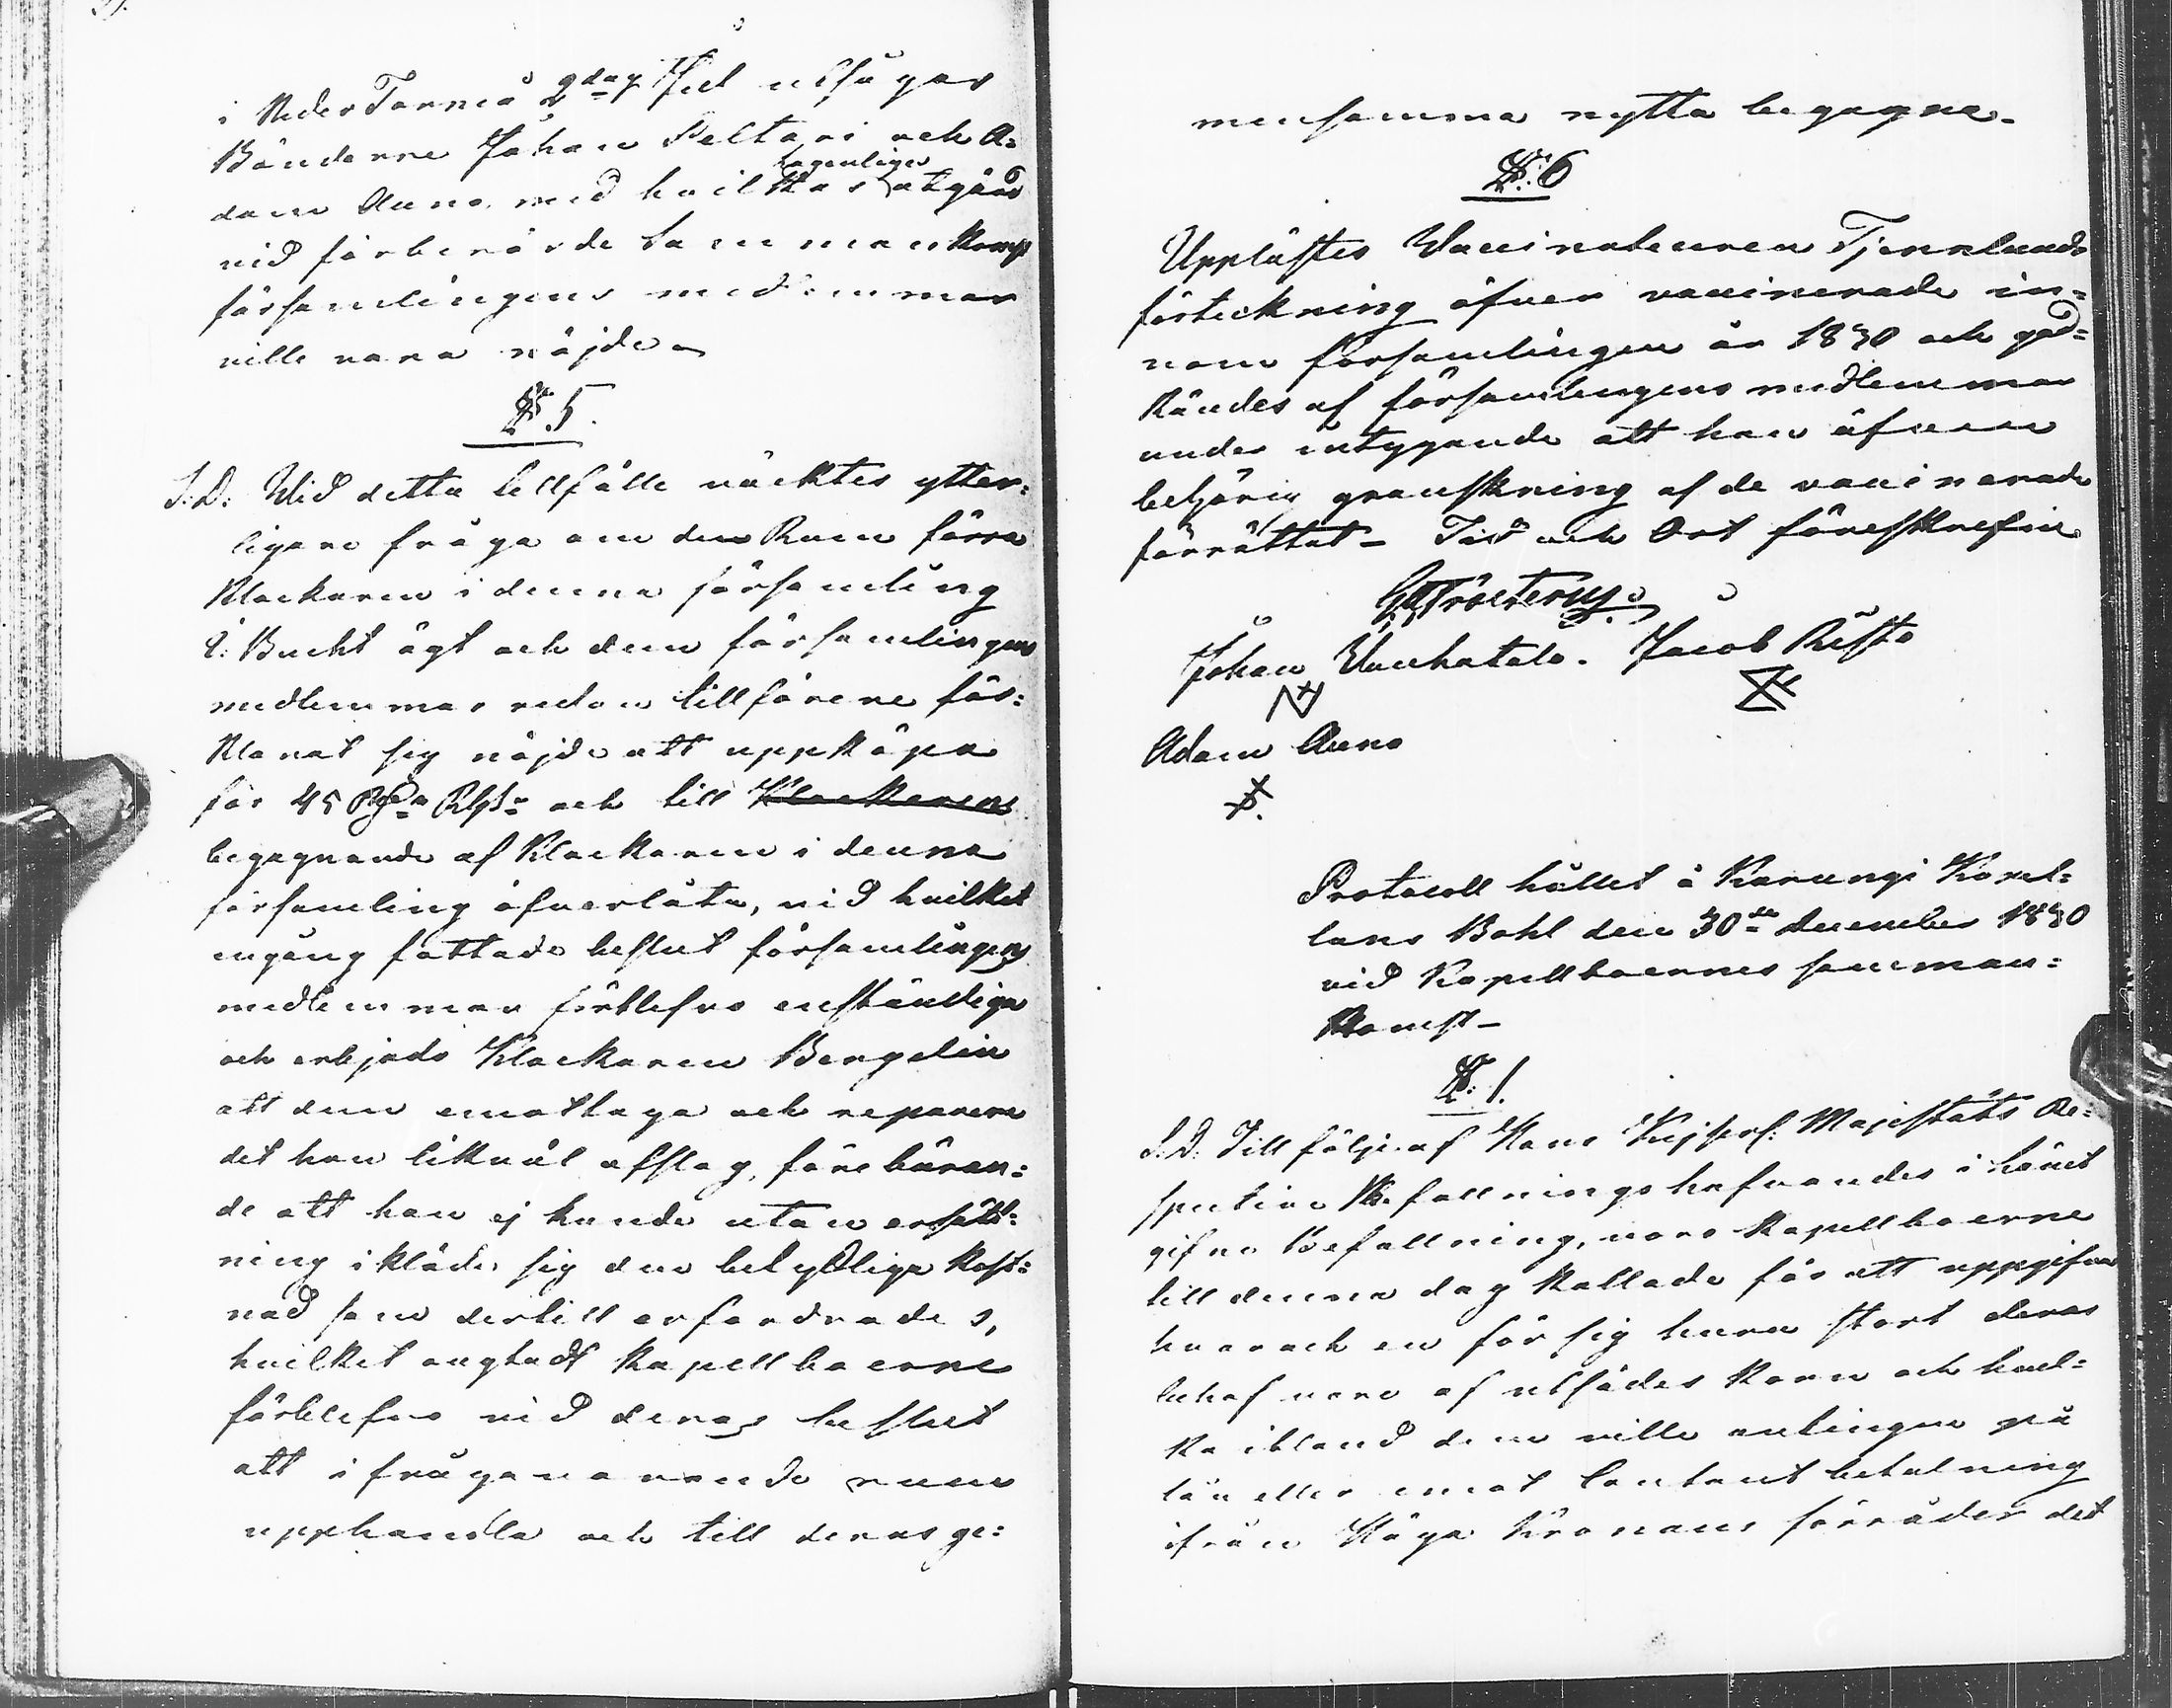 i NederTorneå 2dag Jul utsågos
Bönderne Johan Peltari och A=
dam Auno med hvilkas lagenliga åtgärd
vid förberörde Sammankomst
församlingens medlemmar
ville vara nöjde
§ 5.
S.D. Wid detta tillfälle väcktes ytter=
ligare fråga om den Ruin förra
Klockaren i denna församling
O: Bucht ägt och dem församlingens
medlemmar redan tillförene för=
klarat sig nöjde att uppköpa
för 45 Rd Rgs och till Klockarens
begagnande af Klockaren i denna
församling öfverlåta, vid hvilket
engång fattade beslut församlingens
medlemmar förblefvo enständiga
och erbjöds Klockaren Bergelin
att den emottaga och reparera
det han likväl afslog, föreburan=
de att han ej kunde utan ersätt=
ning ikläda sig den betydliga kost=
nad som dertill erfordrades,
hvilket ungtadt Kapellboerne
förblefvo vid deras beslut
att i fråga varande ruin
upphandla och till deras ge=
mensamma nytta begagna.
§ 6
Upplästes Vaccinateuren Tjernlunds
förteckning öfver vaccinerade in=
nom församlingen år 1830 och god=
kändes af församlingens medlemmar
under intygande att han äfven
behörig granskning af de vaccinerade
förrättat – Tid och Ort föreskrefne
Johan Vanhatalo. Jacob Risto
Adam Auno
Protocoll hållet å Karungi Kapel=
lans Bohl den 30de december 1830
vid Kapellboernes samman=
komst –
§ 1.
S.D. Till följe af Hans Kejserl: Majestäts Re=
spective Befallningshafvandes i härvid
gifne Befallning, voro Kapellboerne
till denna dag kallade för att uppgifva
hvar och en för sig huru stort deras
behof vore af utsädes korn och hvil=
ka ibland dem ville antingen på
lån eller emot Contant betalning
ifrån Höga Kronans förråder det